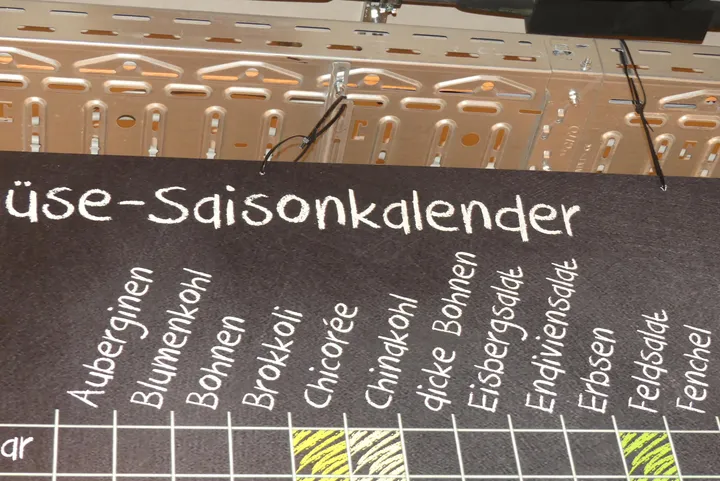 üse-Saisonkalender
Auberginen
Blumenkohl
Bohnen
Brokkoli
Chicorée
Chinakohl
dicke Bohnen
Eisbergsalat
Endiviensalat
Erbsen
Feldsalat
Fenchel
ar